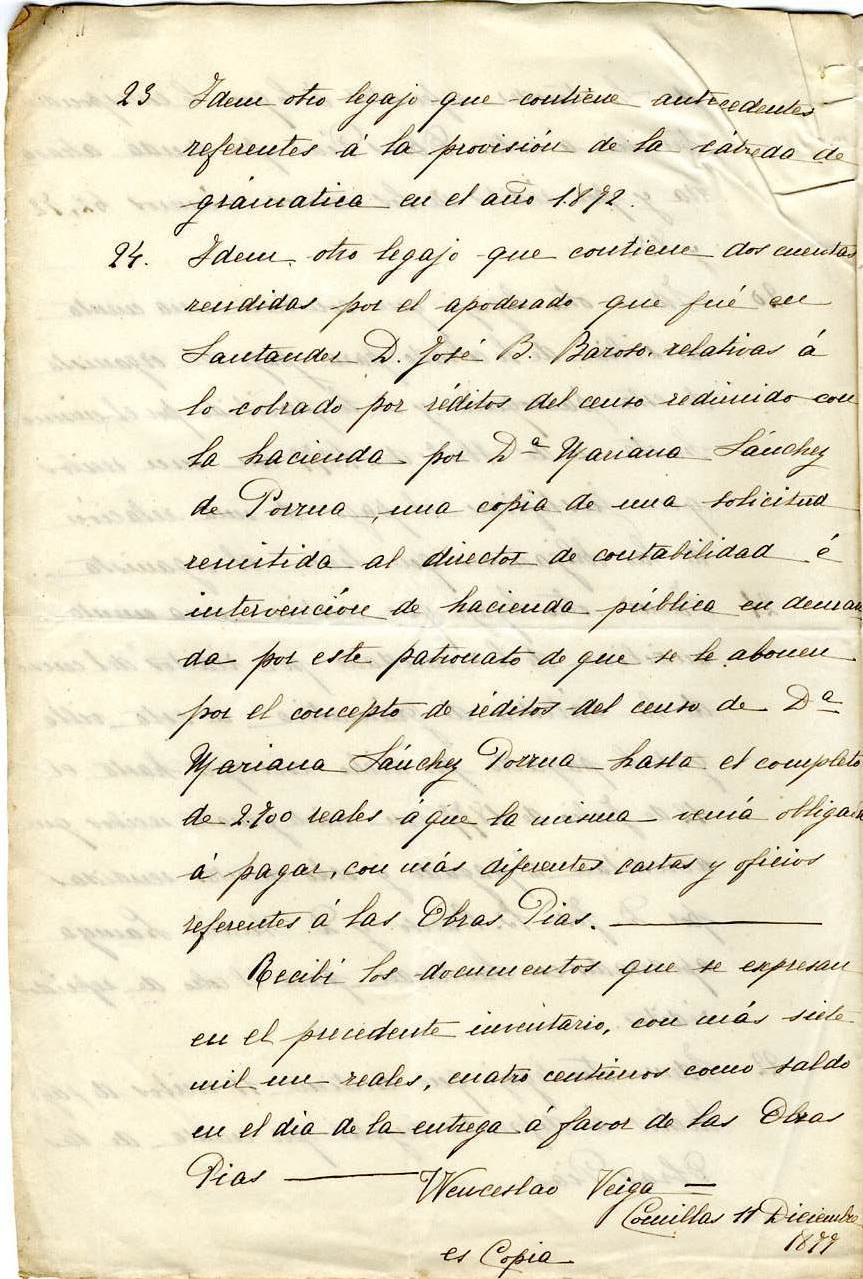 23 Idem otro legajo que contiene antecedentes
referentes á la provisión de la cátreda de
grámatica en el año 1.872.
24. Idem otro legajo que contiene dos cuentas
rendidas por el apoderado que fué en
Santander D. José B. Baroso, relativas á
lo cobrado por réditos del censo redimido con
la hacienda por Dª Mariana Sánchez
de Porrua, una copia de una solicitud
remitida al director de contabilidad é
intervención de hacienda pública en deman
da por este patronato de que se le abonen
por el concepto de réditos del censo de Dª
Mariana Sánchez Porrua hasta el completo
de 2.700 reales á que la misma venía obligada
á pagar, con más diferentes cartas y oficios
referentes á las Obras Pias.
Recibí los documentos que se expresan
en el precedente inventario, con más siete
mil un reales, cuatro centimos como saldo
en el dia de la entrega á favor de las Obras
Pias
Wenceslao Veiga
Comillas 11 Diciembre
1877
es Copia